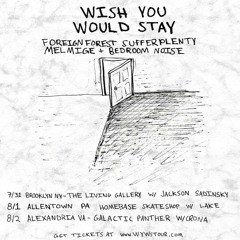 WISH YOU
WOULD STAY
FOREIGN FOREST SUFFERPLENTY
MELMIGE + BEDROOM NOISE
7/31 BROOKLYN NY-THE LIVING GALLERY W/ JACKSON SADINSKY
8/1 ALLENTOWN PA HOMEBASE SKATESHOP W/ LAKE
8/2 ALEXANDRIA VA- GALACTIC PANTHER W/CRONA
GET TICKETS AT WWW.WYWSTOUR.COM